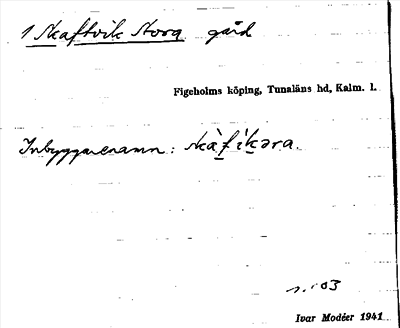 1 Skaftvik Stora gård
Figeholms köping, Tunaläns hd, Kalm. l.
Inbyggarenamn: skàfikəra.
s. 103
Ivar Modéer 1941